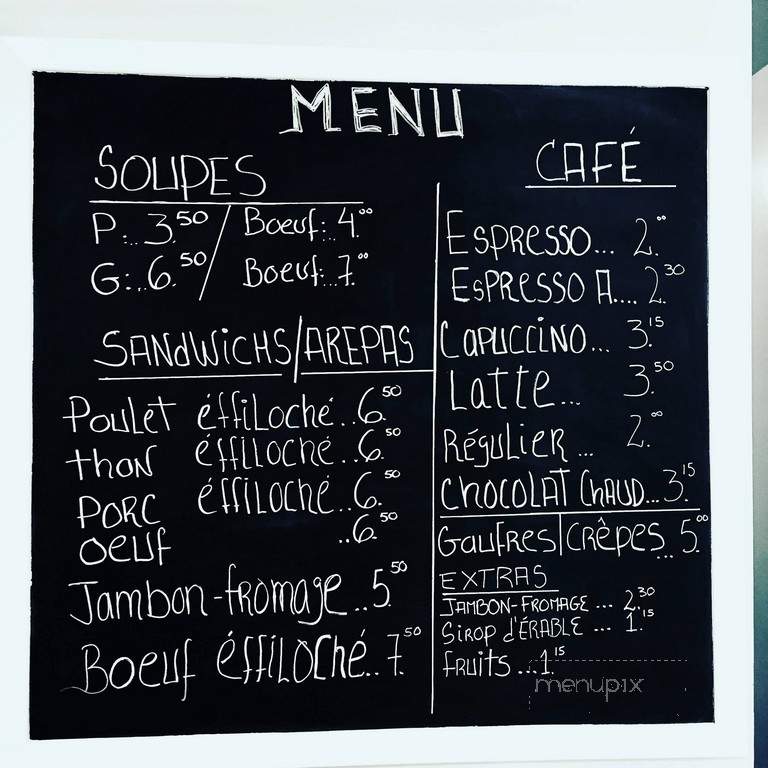 MENU
SOUPES
P:.. 3.50 / Boeuf:. 4.00
G:..6.50 / Boeuf:..7.00
SANDWICHS/AREPAS
Poulet éffiloché..6.50
thon éffiloché..6.50
PORC éffiloché..6.50
oeuf ..6.50
Jambon-fromage..5.50
Boeuf éffiloché..7.50
CAFÉ
ESPRESSO... 2.00
ESPRESSO A.... 2.30
CAPUCCINO... 3.15
Latte... 3.50
RÉGULIER ... 2.00
CHOCOLAT CHAUD...3.15
Gaufres|CRÊPES.. 5.00
EXTRAS
JAMBON-FROMAGE ... 2.30
SIROP d'ÉRABLE ... 1.15
fruits ...1.15
menupix